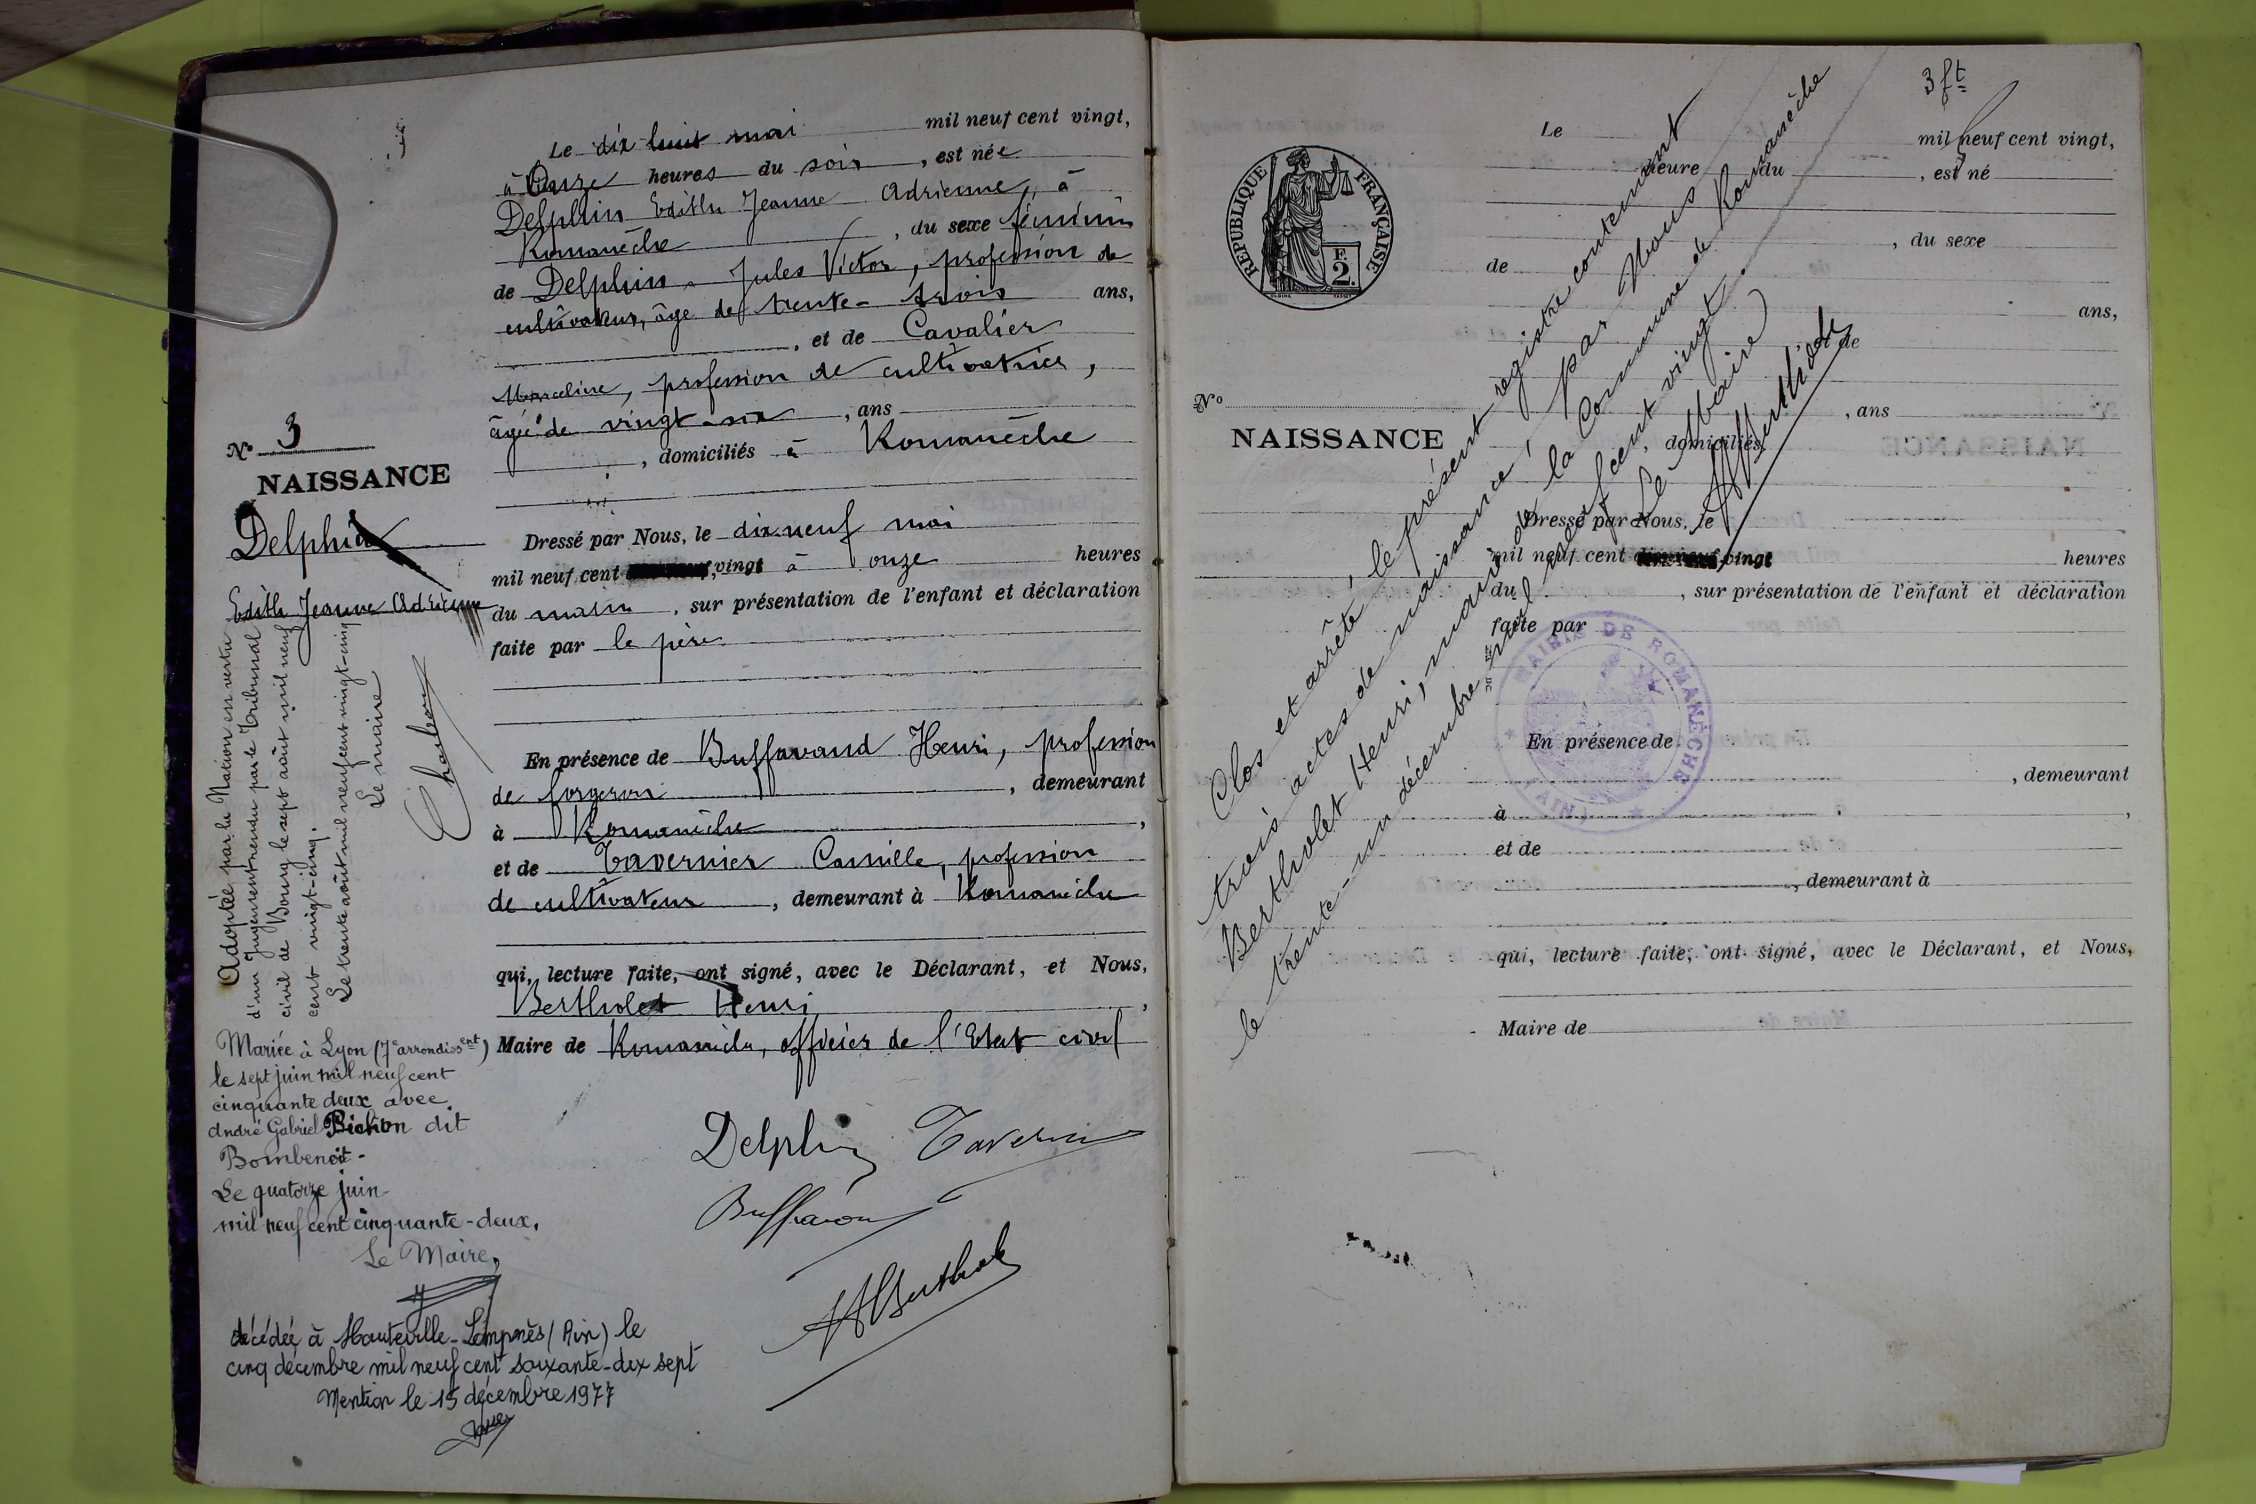 Le dix huit mai mil neuf cent vingt,
à Onze heures du soir, est née
Delphin Edith Jeanne Adrienne, à
Romanèche, du sexe féminin
de Delphin Jules Victor, profession de
cultivateur, âgé de trente-trois ans,
, et de Cavalier
Marceline, profession de cultivatrice,
âgée de vingt-six, ans
, domiciliés à Romanèche
Nº 3
NAISSANCE
Delphin
Edith Jeanne Adrienne
Dressé par Nous, le dix-neuf mai
mil neuf cent vingt à onze heures
du matin, sur présentation de l'enfant et déclaration
faite par le père
En présence de Buffavand Henri, profession
de forgeron, demeurant
à Romanèche,
et de Tavernier Camille, profession
de cultivateur, demeurant à Romanèche
qui, lecture faite, ont signé, avec le Déclarant, et Nous,
Bertholet Henri,
Maire de Romanèche, officier de l'Etat civil
Delphin Tavernier
Buffavand
HBertholet
Adoptée par la Nation en vertu
d'un Jugement rendu par le Tribunal
civil de Bourg le sept août mil neuf
cent vingt-cinq.
Le trente août mil neuf cent vingt-cinq
Le maire
Mariée à Lyon (7e arrondissent)
le sept juin mil neuf cent
cinquante deux avec
André Gabriel Pichon dit
Bombenoit-
Le quatorze juin
mil neuf cent cinquante-deux.
Le Maire,
décédée à Hauteville-Lompnès (Ain) le
cinq décembre mil neuf cent soixante-dix sept
Mention le 15 décembre 1977
3 ft
RÉPUBLIQUE FRANÇAISE
F.
2.
Le mil neuf cent vingt,
heure du, est né
, du sexe
de
ans,
et de
Nº
NAISSANCE
, ans
domiciliés
Dressé par Nous, le
mil neuf cent dix-neuf vingt heures
du, sur présentation de l'enfant et déclaration
faite par
En présence de
, demeurant
à,
et de
, demeurant à
qui, lecture faite, ont signé, avec le Déclarant, et Nous,
Maire de
Clos et arrêté, le présent registre contenant
trois actes de naissance, par Nous
Bertholet Henri, maire de la Commune de Romanèche
le trente-un décembre mil neuf cent vingt.
Le Maire
HBertholet
MAIRIE DE ROMANÈCHE
(AIN)